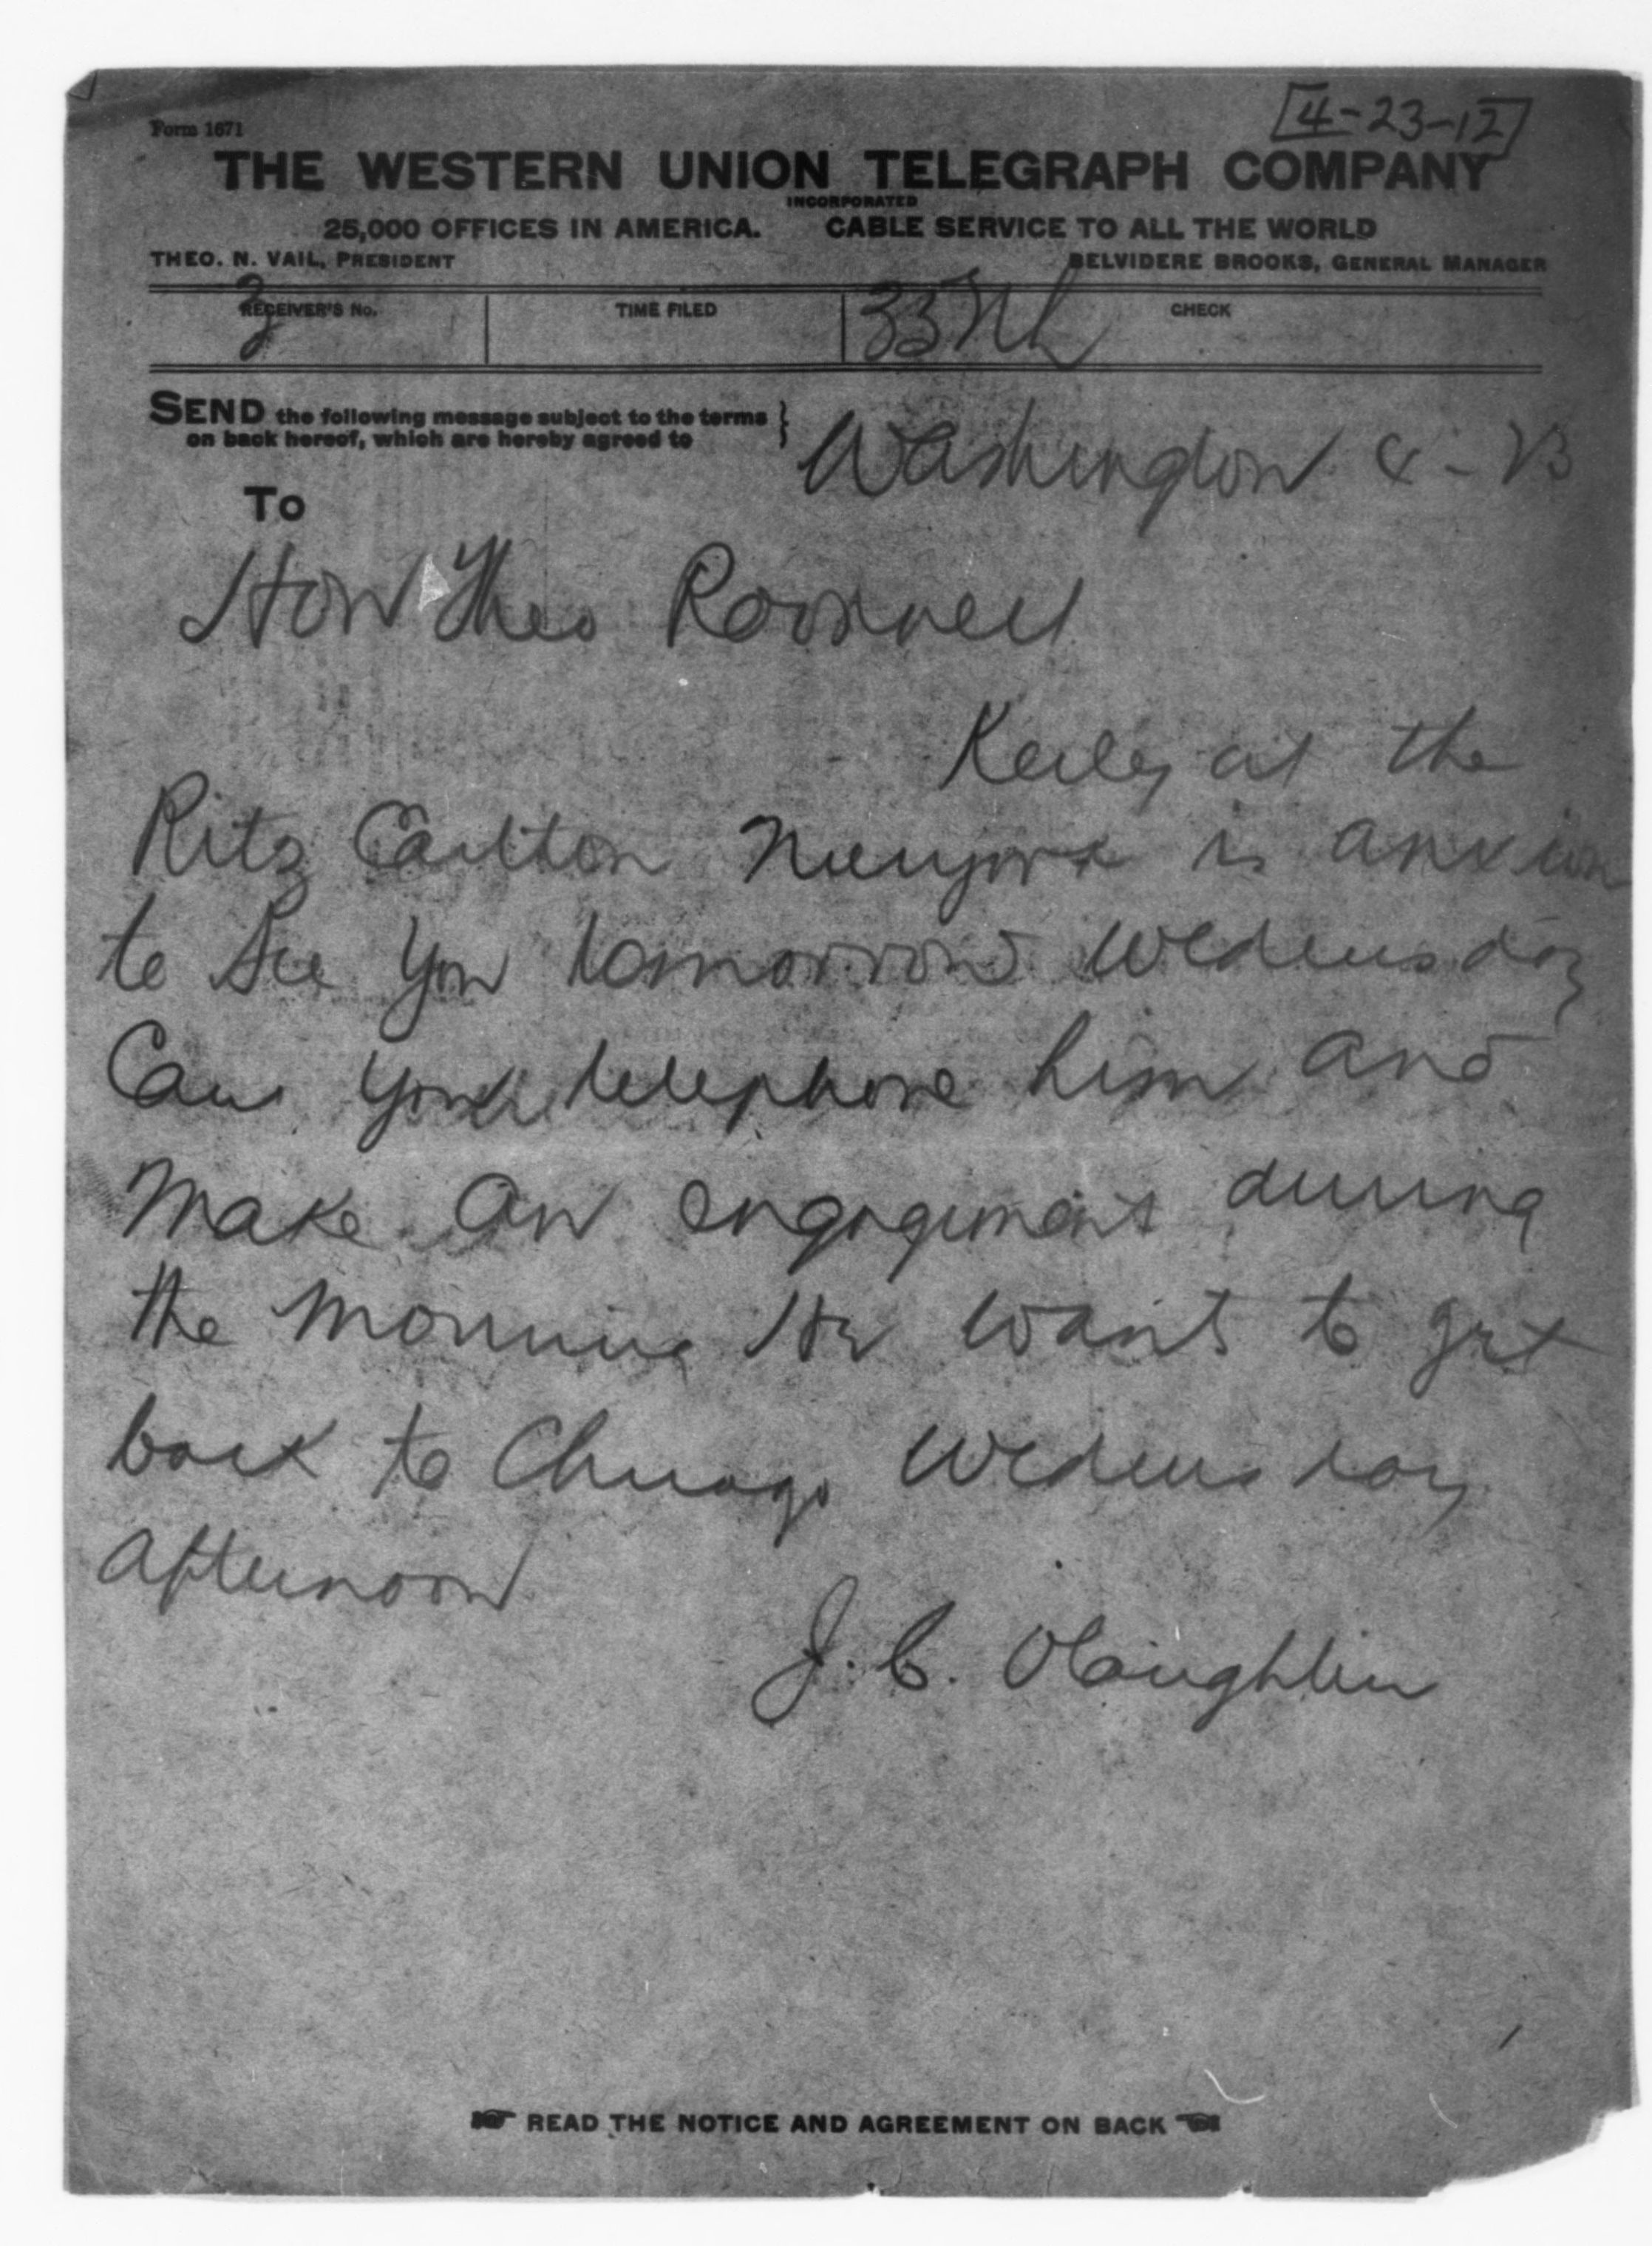 [4-23-12]
Form 1671
THE WESTERN UNION TELEGRAPH COMPANY
INCORPORATED
25,000 OFFICES IN AMERICA. CABLE SERVICE TO ALL THE WORLD
THEO. N. VAIL, PRESIDENT BELVIDERE BROOKS, GENERAL MANAGER
RECEIVER'S No. TIME FILED CHECK
33 Nh
SEND the following message subject to the terms
on back hereof, which are hereby agreed to
Washington 4-23
To
Hon Theo Roosevelt
Keeley at the
Ritz Carlton Newyork is anxious
to See You tomorrow Wednesday
Can You telephone him and
Make an engagement during
the Morning He wants to get
back to Chicago Wednesday
afternoon
J. C. OLaughlin
READ THE NOTICE AND AGREEMENT ON BACK